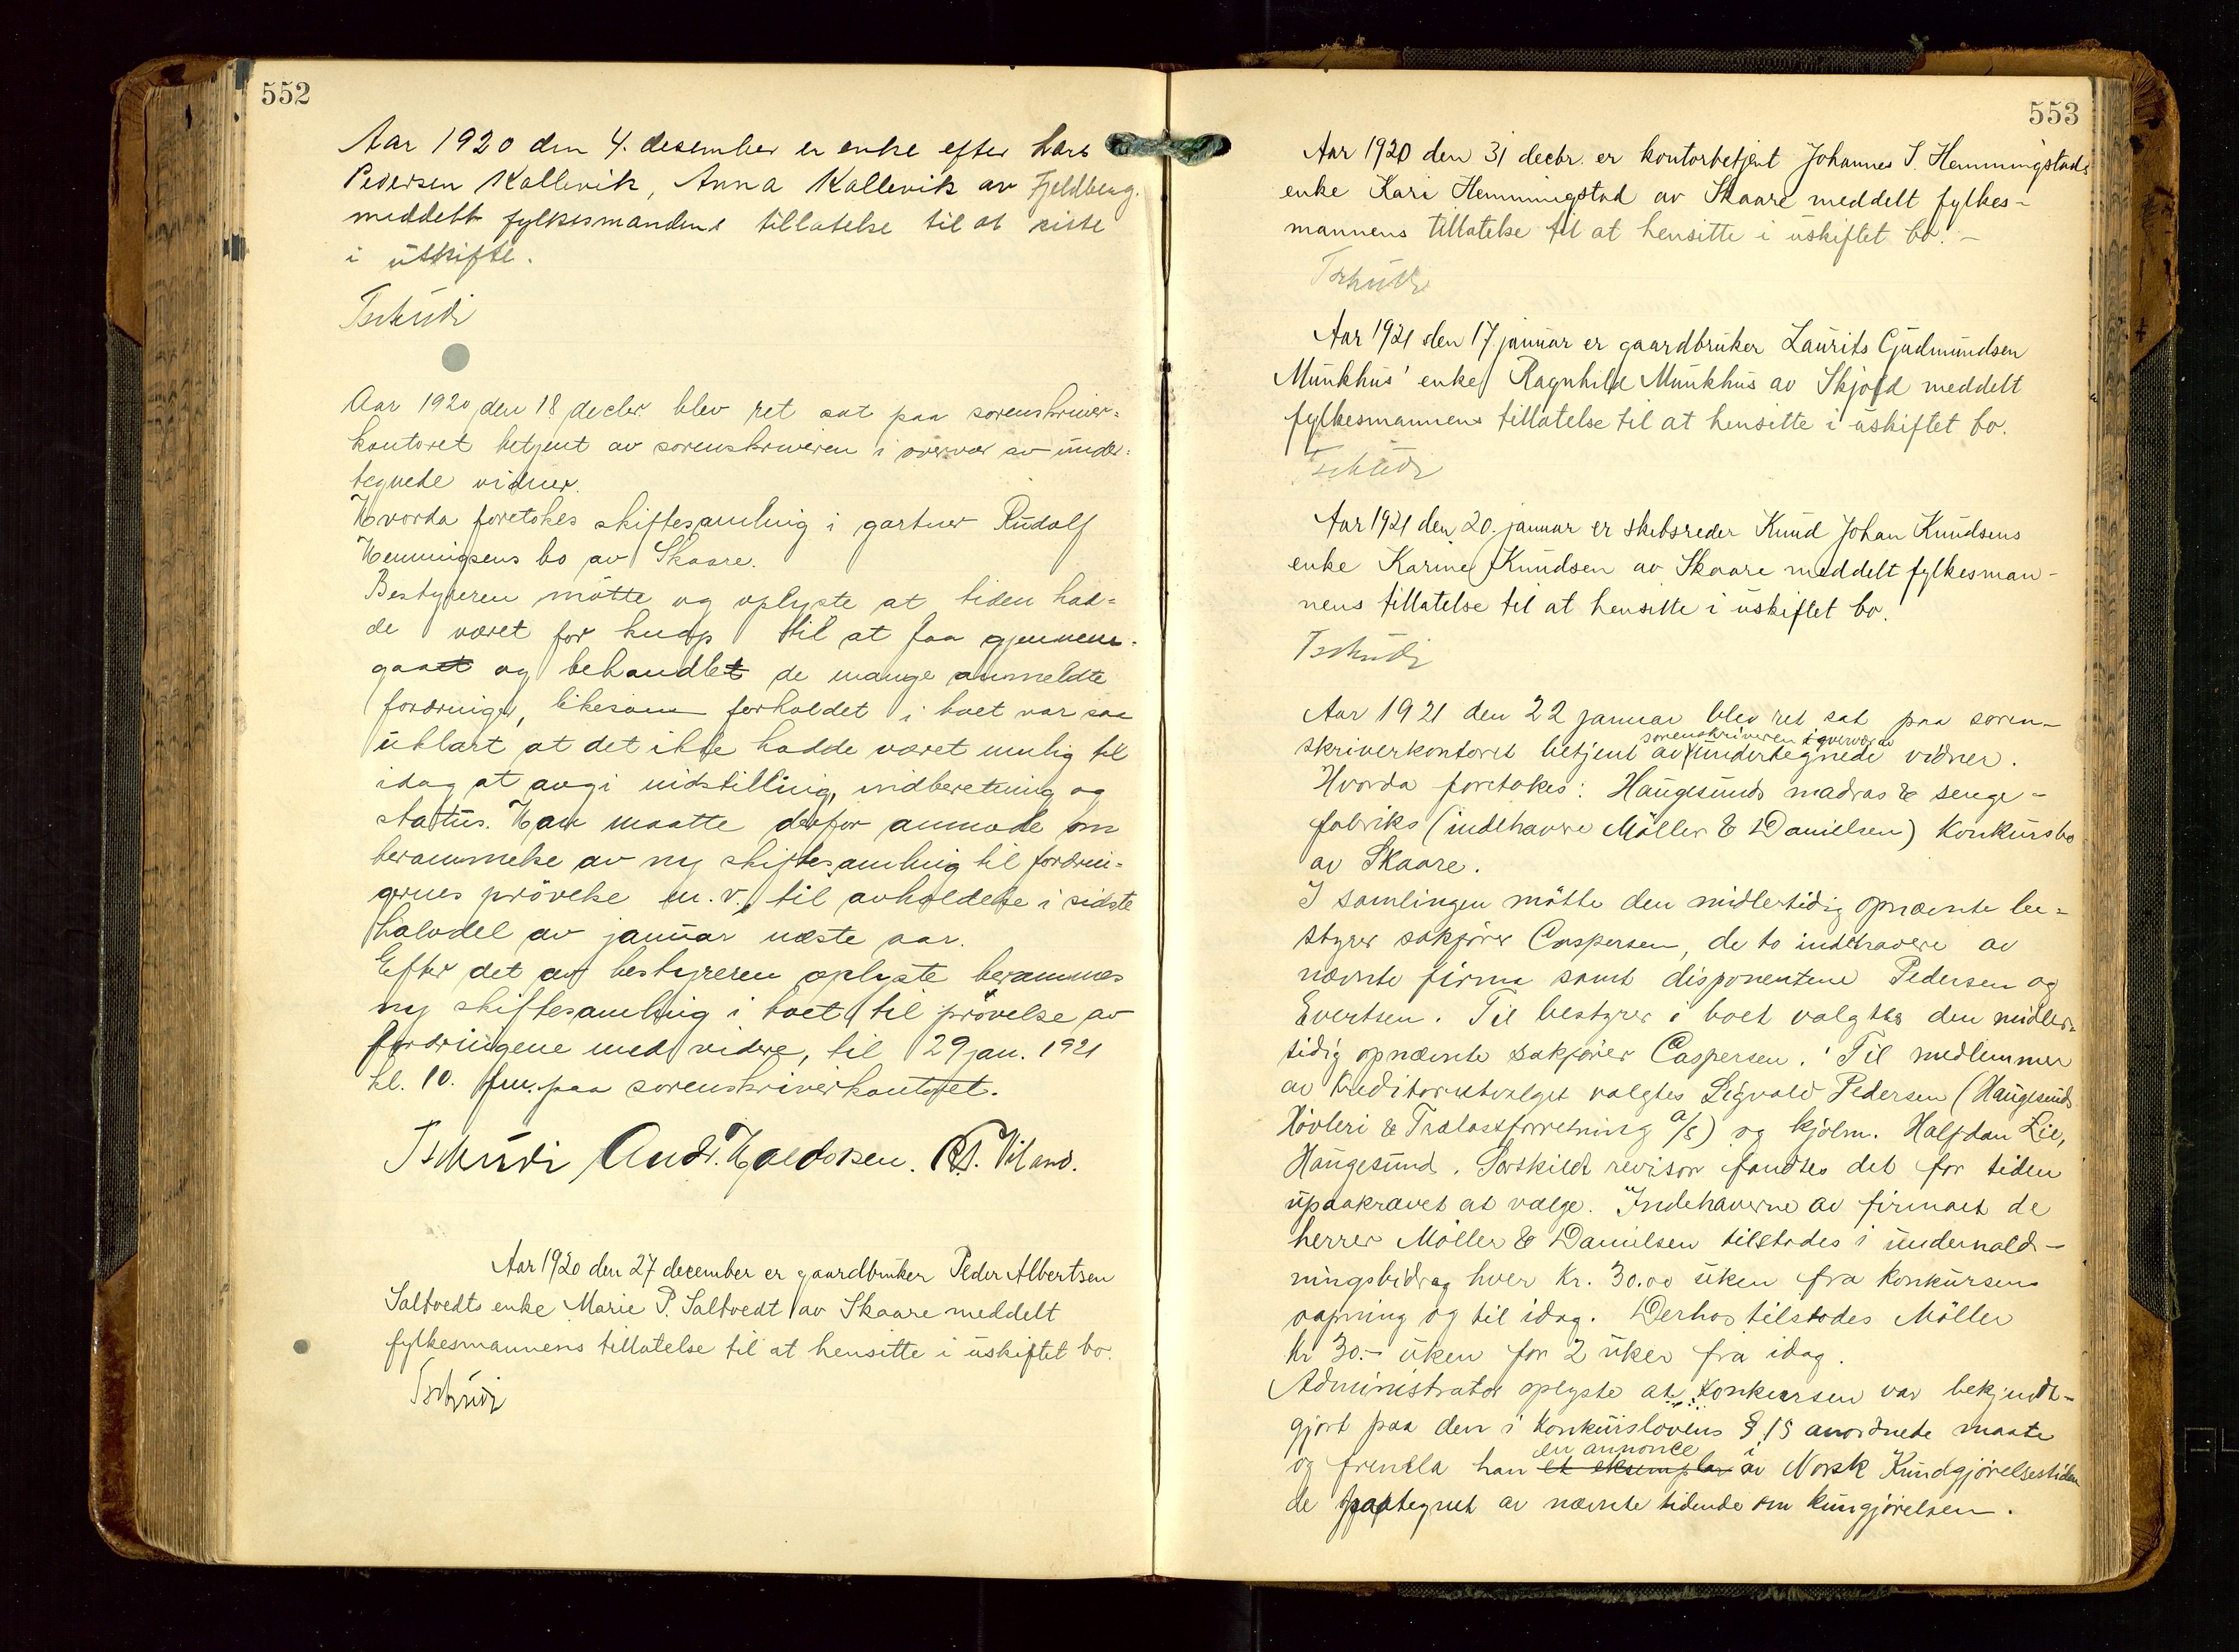 552
Aar 1920 den 4. desember er enke efter Lars
Pedersen Kallevik, Anna Kallevik av Fjeldberg.
meddelt fylkesmandens tillatelse til at sitte
i uskifte.
Tschudi
Aar 1920 den 18 decbr blev ret sat paa sorenskriver-
kontoret betjent av sorenskriveren i overvær av under-
tegnede vidner.
Hvorda foretokes skiftesamling i gartner Rudolf
Hemmingsens bo av Skaare.
Bestyreren møtte og oplyste at tiden had-
de været for knap til at faa gjennem-
gaatt og behandlet de mange anmeldte
fordringer, likesom forholdet i boet var saa
uklart at det ikke hadde været mulig til
idag at avgi indstilling, indberetning og
status. Han maatte derfor anmode om
berammelse av ny skiftesamling til fordrin-
gernes prövelse m.v. til avholdelse i sidste
halvdel av januar næste aar.
Efter det av bestyreren oplyste berammes
ny skiftesamling i boet til prövelse av
fordringene med videre, til 29 jan. 1921
kl. 10. fm. paa sorenskriverkontoret.
Tschudi And. Haldorsen. Viland.
Aar 1920 den 27 december er gaardbruker Peder Albertsen
Saltvedts enke Marie P. Saltvedt av Skaare meddelt
fylkesmannens tillatelse til at hensitte i uskiftet bo.
Tschudi
553
Aar 1920 den 31 decbr. er kontorbetjent Johannes S. Hemmingstads
enke Kari Hemmingstad av Skaare meddelt fylkes-
mannens tillatelse til at hensitte i uskiftet bo. -
Tschudi
Aar 1921 den 17 januar er gaardbruker Laurits Gudmundsen
Munkhus' enke Ragnhild Munkhus av Skjold meddelt
fylkesmannens tillatelse til at hensitte i uskiftet bo.
Tschudi
Aar 1921 den 20. januar er skibsreder Knud Johan Knudsens
enke Karine Knudsen av Skaare meddelt fylkesman-
nens tillatelse til at hensitte i uskiftet bo.
Tschudi
Aar 1921 den 22 januar blev ret sat paa soren-
sorenskriveren i overvær av
skriverkontoret betjent av undertegnede vidner.
Hvorda foretokes: Haugesunds madras & senge-
fabriks (indehavere Möller & Danielsen) Konkursbo
av Skaare.
I samlingen mötte den midlertidig opnævnte be-
styrer sakförer Caspersen, de to indehavere av
nævnte firma samt disponentene Pedersen og
Evertsen. Til bestyrer i boet valgtes den midler-
tidig opnævnte sakförer Caspersen. Til medlemmer
av kreditorutvalget valgtes Sigvald Pedersen (Haugesunds
Hövleri & Trælastforretning A/S) og kjölm. Halfdan Lie,
Haugesund. Særskilt revisor fandtes det for tiden
upaakrævet at vælge. Indehaverne av firmaet de
herrer Möller & Danielsen tilstodes i underhold-
ningsbidrag hver Kr. 30.00 uken fra konkursens
aapning og til idag. Derhos tilstodes Möller
kr 30.- uken for 2 uker fra idag.
Administrator oplyste at konkursen var bekjendt-
gjort paa den i Konkurslovens § 15 anordnede maate
en annonce i
og fremla han et eksemplar av Norsk Kundgjörelsestiden
de paategnet av nævnte tidende om kungjörelsen.